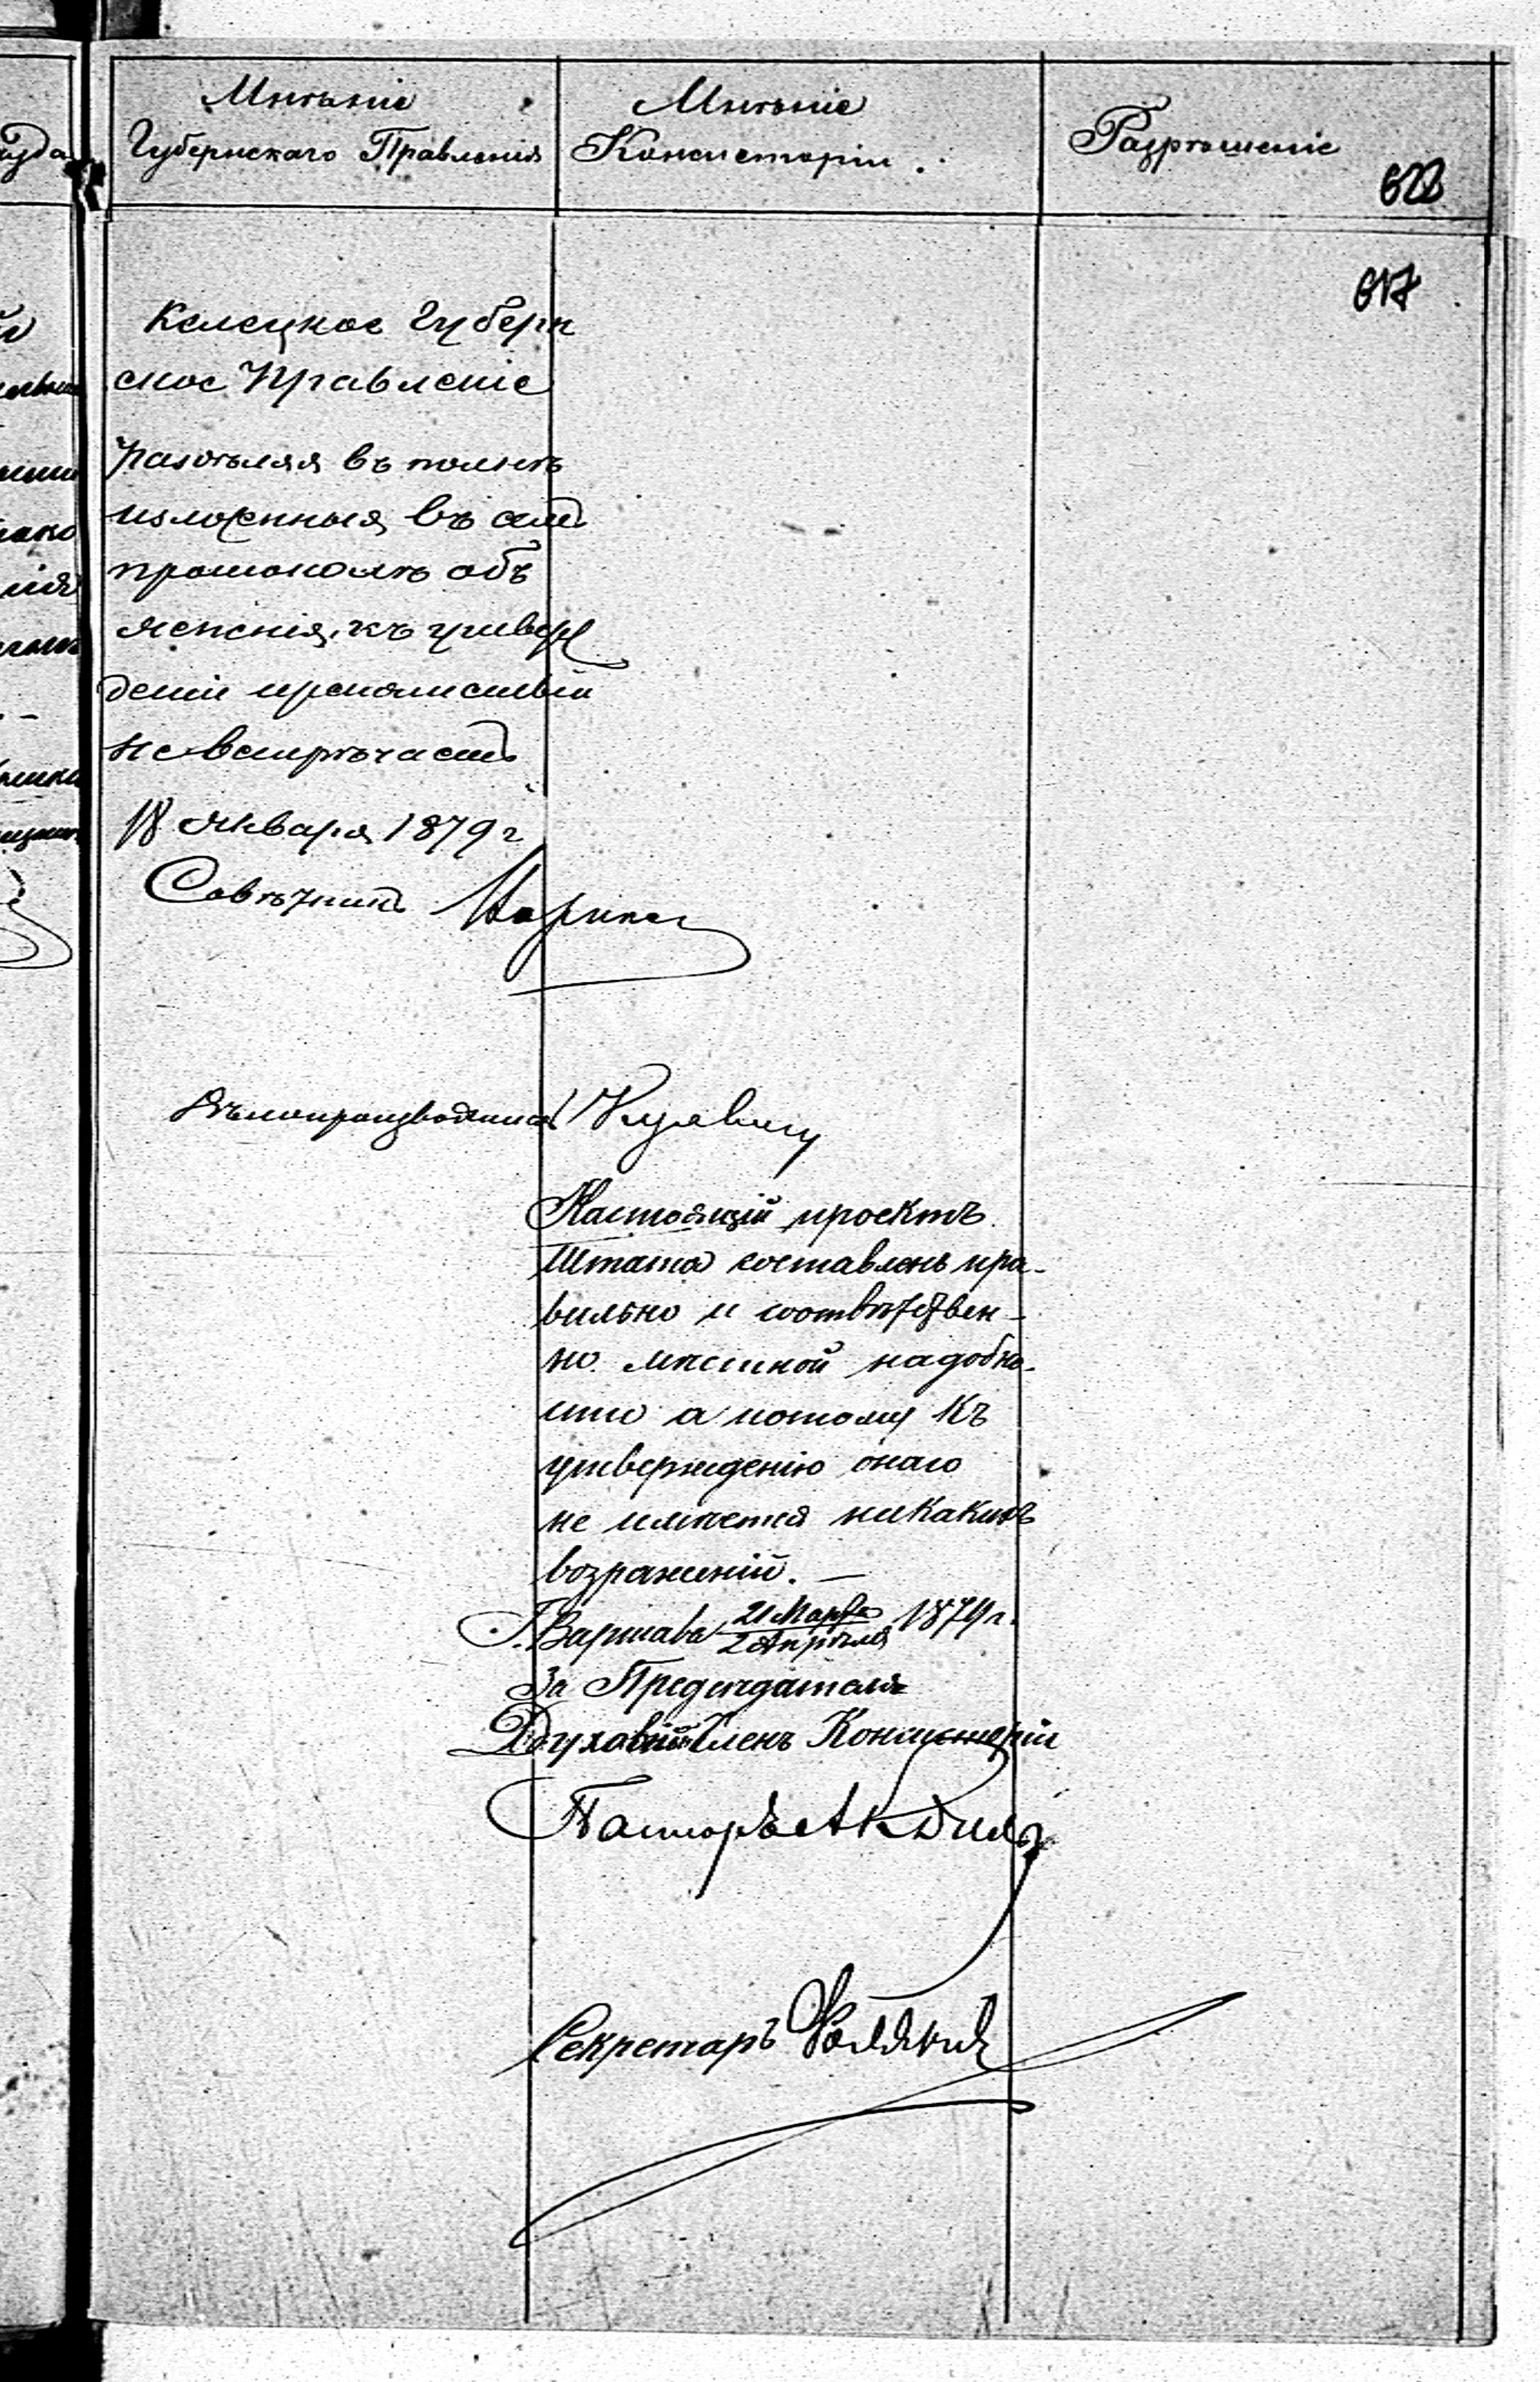 Мнѣніе
Губернскаго Правленія
Мнѣніе
Консисторіи.
Разрѣшеніе
622
617
Келецкое Губерн
ское Правленіе
раздѣляя въ полнѣ
изложенныя въ семъ
протоколѣ объ
ясненія, къ утверж
деніи препятствій
не встрѣчаетъ
18 Января 1879 г
Совѣтникъ
Дѣлопроизводитель
Настоящій проектъ
Штата составленъ пра-
вильно и соотвѣтствен-
но мѣстной надобно-
сти а потому къ
утвержденію онаго
не имѣется никакихъ
возраженій. —
Г. Варшава 21 Марта / 2 Апрѣля 1879 г.
За Предсѣдателя
Духовный Членъ Консисторіи
Пасторъ
Секретарь